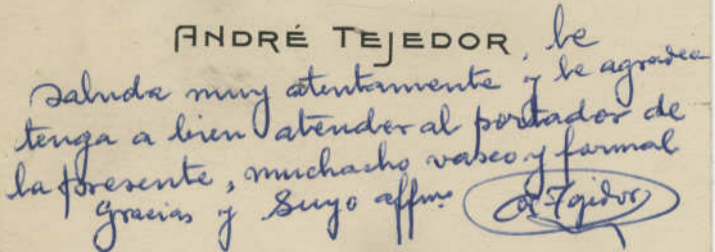 ANDRÉ TEJEDOR, le
saluda muy atentamente y le agradece
tenga a bien atender al portador de
la presente, muchacho vasco y formal
Gracias y Suyo affmo